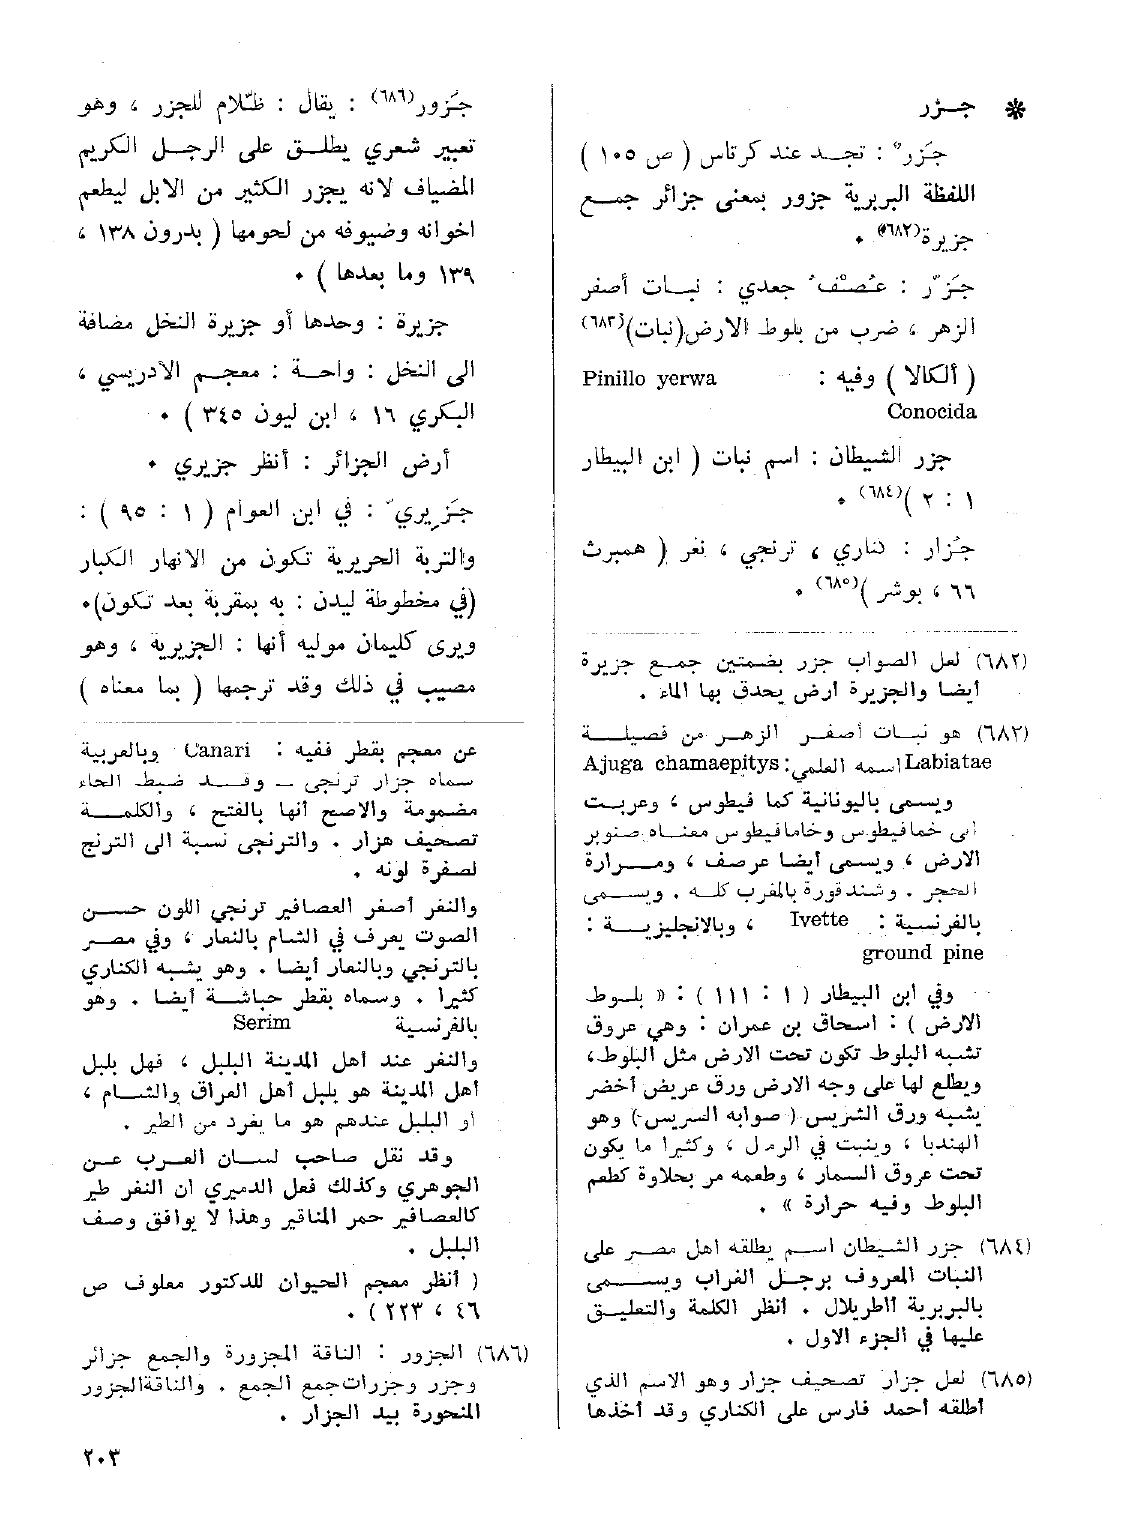 ✵ جــزر
جَزَر° : تجــد عند كرتاس ( ص ١٠٥ )
اللفظة البربرية جزور بمعنى جزائر جمــع
جزيرة(٦٨٢) .
جَزَّر : عُصْف جعدي : نبــات أصفر
الزهر ، ضرب من بلوط الارض(نبات)(٦٨٣)
( ألكالا ) وفيه : Pinillo yerwa
Conocida
جزر الشيطان : اسم نبات ( ابن البيطار
١ : ٢ )(٦٨٤) .
جُزار : كناري ، ترنجي ، نغر ( همبرت
٦٦ ، بوشر )(٦٨٥) .
(٦٨٢) لعل الصواب جزر بضمتين جمــع جزيرة
أيضا والجزيرة أرض يحدق بها الماء .
(٦٨٣) هو نبــات أصفــر الزهــر من فصيلــة
Labiatae اسمه العلمي: Ajuga chamaepitys
ويسمى باليونانية كما فيطوس ، وعربــت
الى خما فيطوس وخاما فيطوس معناه صنوبر
الارض ، ويسمى أيضا عرصف ، ومــرارة
الحجر . وشندقورة بالمغرب كله . ويســمى
بالفرنسية : Ivette ، وبالانجليزيــة :
ground pine
وفي ابن البيطار ( ١ : ١١١ ) : « بلــوط
الارض ) : اسحاق بن عمران : وهي عروق
تشبه البلوط تكون تحت الارض مثل البلوط،
ويطلع لها على وجه الارض ورق عريض أخضر
يشبه ورق الشريس ( صوابه السريس ) وهو
الهندبا ، وينبت في الرمل ، وكثيرا ما يكون
تحت عروق الســمار ، وطعمه مر بحلاوة كطعم
البلوط وفيه حرارة » .
(٦٨٤) جزر الشيطان اســم يطلقه اهل مصــر على
النبات المعروف برجــل الغراب ويســـمى
بالبربرية أاطريلال . أنظر الكلمة والتعليــق
عليها في الجزء الاول .
(٦٨٥) لعل جزار تصحيف جزار وهو الاسم الذي
أطلقه أحمد فارس على الكناري وقد أخذها
جَزور(٦٨٦) : يقال : ظلّام للجزر ، وهو
تعبير شعري يطلــق على الرجــل الكريم
المضياف لانه يجزر الكثير من الابل ليطعم
اخوانه وضيوفه من لحومها ( بدرون ١٣٨ ،
١٣٩ وما بعدها ) .
جزيرة : وحدها أو جزيرة النخل مضافة
الى النخل : واحــة : معجــم الادريسي ،
البكري ١٦ ، ابن ليون ٣٤٥ ) .
أرض الجزائر : أنظر جزيري .
جَزيريّ : في ابن العوام ( ١ : ٩٥ ) :
والتربة الحريرية تكون من الانهار الكبار
(في مخطوطة ليدن : به بمقربة بعد تكون).
ويرى كليمان موليه أنها : الجزيرية ، وهو
مصيب في ذلك وقد ترجمها ( بما معناه )
عن معجم بقطر ففيه : Canari وبالعربية
سماه جزار ترنجي ــ وقــد ضبط الحاء
مضمومة والاصح أنها بالفتح ، والكلمــة
تصحيف هزار . والترنجي نسبة الى الترنج
لصفرة لونه .
والنغر أصغر العصافير ترنجي اللون حســن
الصوت يعرف في الشام بالنعار ، وفي مصــر
بالترنجي وبالنعار أيضا . وهو يشبه الكناري
كثيرا . وسماه بقطر حباشــة أيضا . وهو
بالفرنسية Serim
والنغر عند أهل المدينة البلبل ، فهل بلبل
أهل المدينة هو بلبل أهل العراق والشــام ،
أو البلبل عندهم هو ما يغرد من الطير .
وقد نقل صاحب لســان العرب عــن
الجوهري وكذلك فعل الدميري ان النغر طير
كالعصافير حمر المناقير وهذا لا يوافق وصف
البلبل .
( أنظر معجم الحيوان للدكتور معلوف ص
٤٦ ، ٢٢٣ ) .
(٦٨٦) الجزور : الناقة المجزورة والجمع جزائر
وجزر وجزرات جمع الجمع . والناقةالجزور
المنحورة بيد الجزار .
٢٠٣